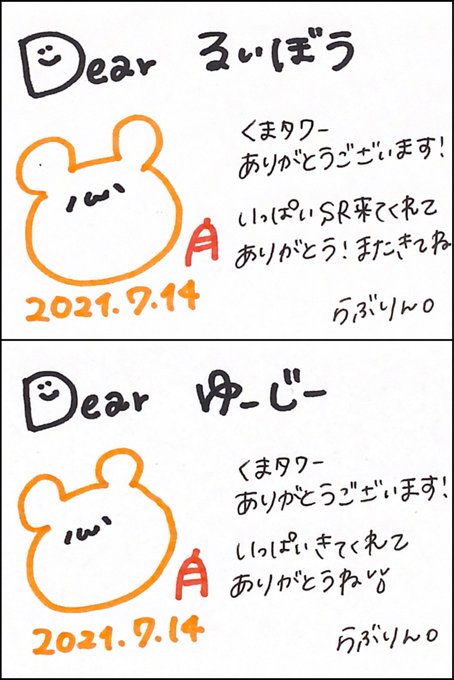 Dear るいぼう
くまタワー
ありがとうございます!
いっぱいSR来てくれて
ありがとう!またきてね
2021.7.14
らぶりん。
Dear ゆーじー
くまタワー
ありがとうございます!
いっぱいきてくれて
ありがとうね
2021.7.14
らぶりん。